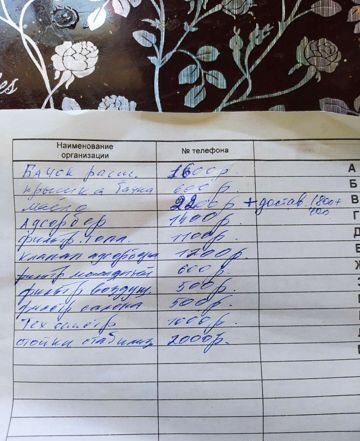 Наименование организации № телефона
Бачок расш. 1600р. А
крышка бачка 600р. Б
масло 2200р + достав 1800+ 400 В
Адсорбер 1400р.
фильтр топл. 1100р. Д
клапан адсорбера 1200р.
фильтр 600р. Ж
фильтр воздуш 500р. З
фильтр салона 500р.
Тех 1000р.
стойки стабилиз 2000р.